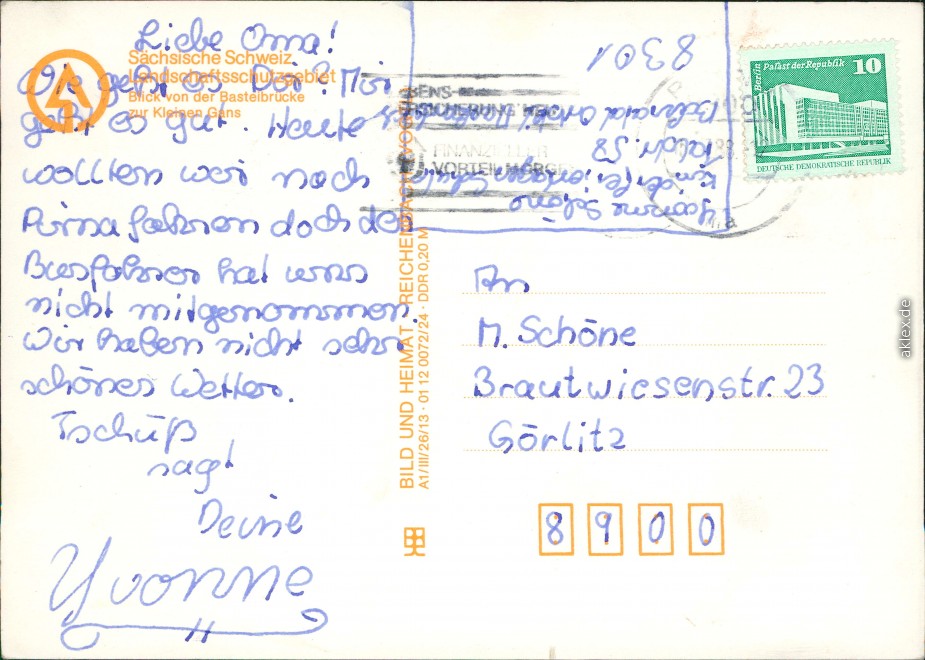 Liebe Oma!
Wie geht es Dir? Mir
geht es gut. Heute
wollten wir nach
Pirna fahren doch der
Busfahrer hat uns
nicht mitgenommen.
Wir haben nicht sehr
schönes Wetter.
Tschüß
sagt
Deine
Yvonne
Sächsische Schweiz
Landschaftsschutzgebiet
Blick von der Basteibrücke
zur Kleinen Gans
Yvonne Schöne
Kinderferienlager
58
8301
FINANZIELLER
VORTEIL MORGEN
BILD UND HEIMAT REICHENBACH VOGTL
A1/III/26/13 · 01 12 0072/24 · DDR 0,20 M
Berlin Palast der Republik 10
DEUTSCHE DEMOKRATISCHE REPUBLIK
An
M. Schöne
Brautwiesenstr. 23
Görlitz
8900
aklex.de